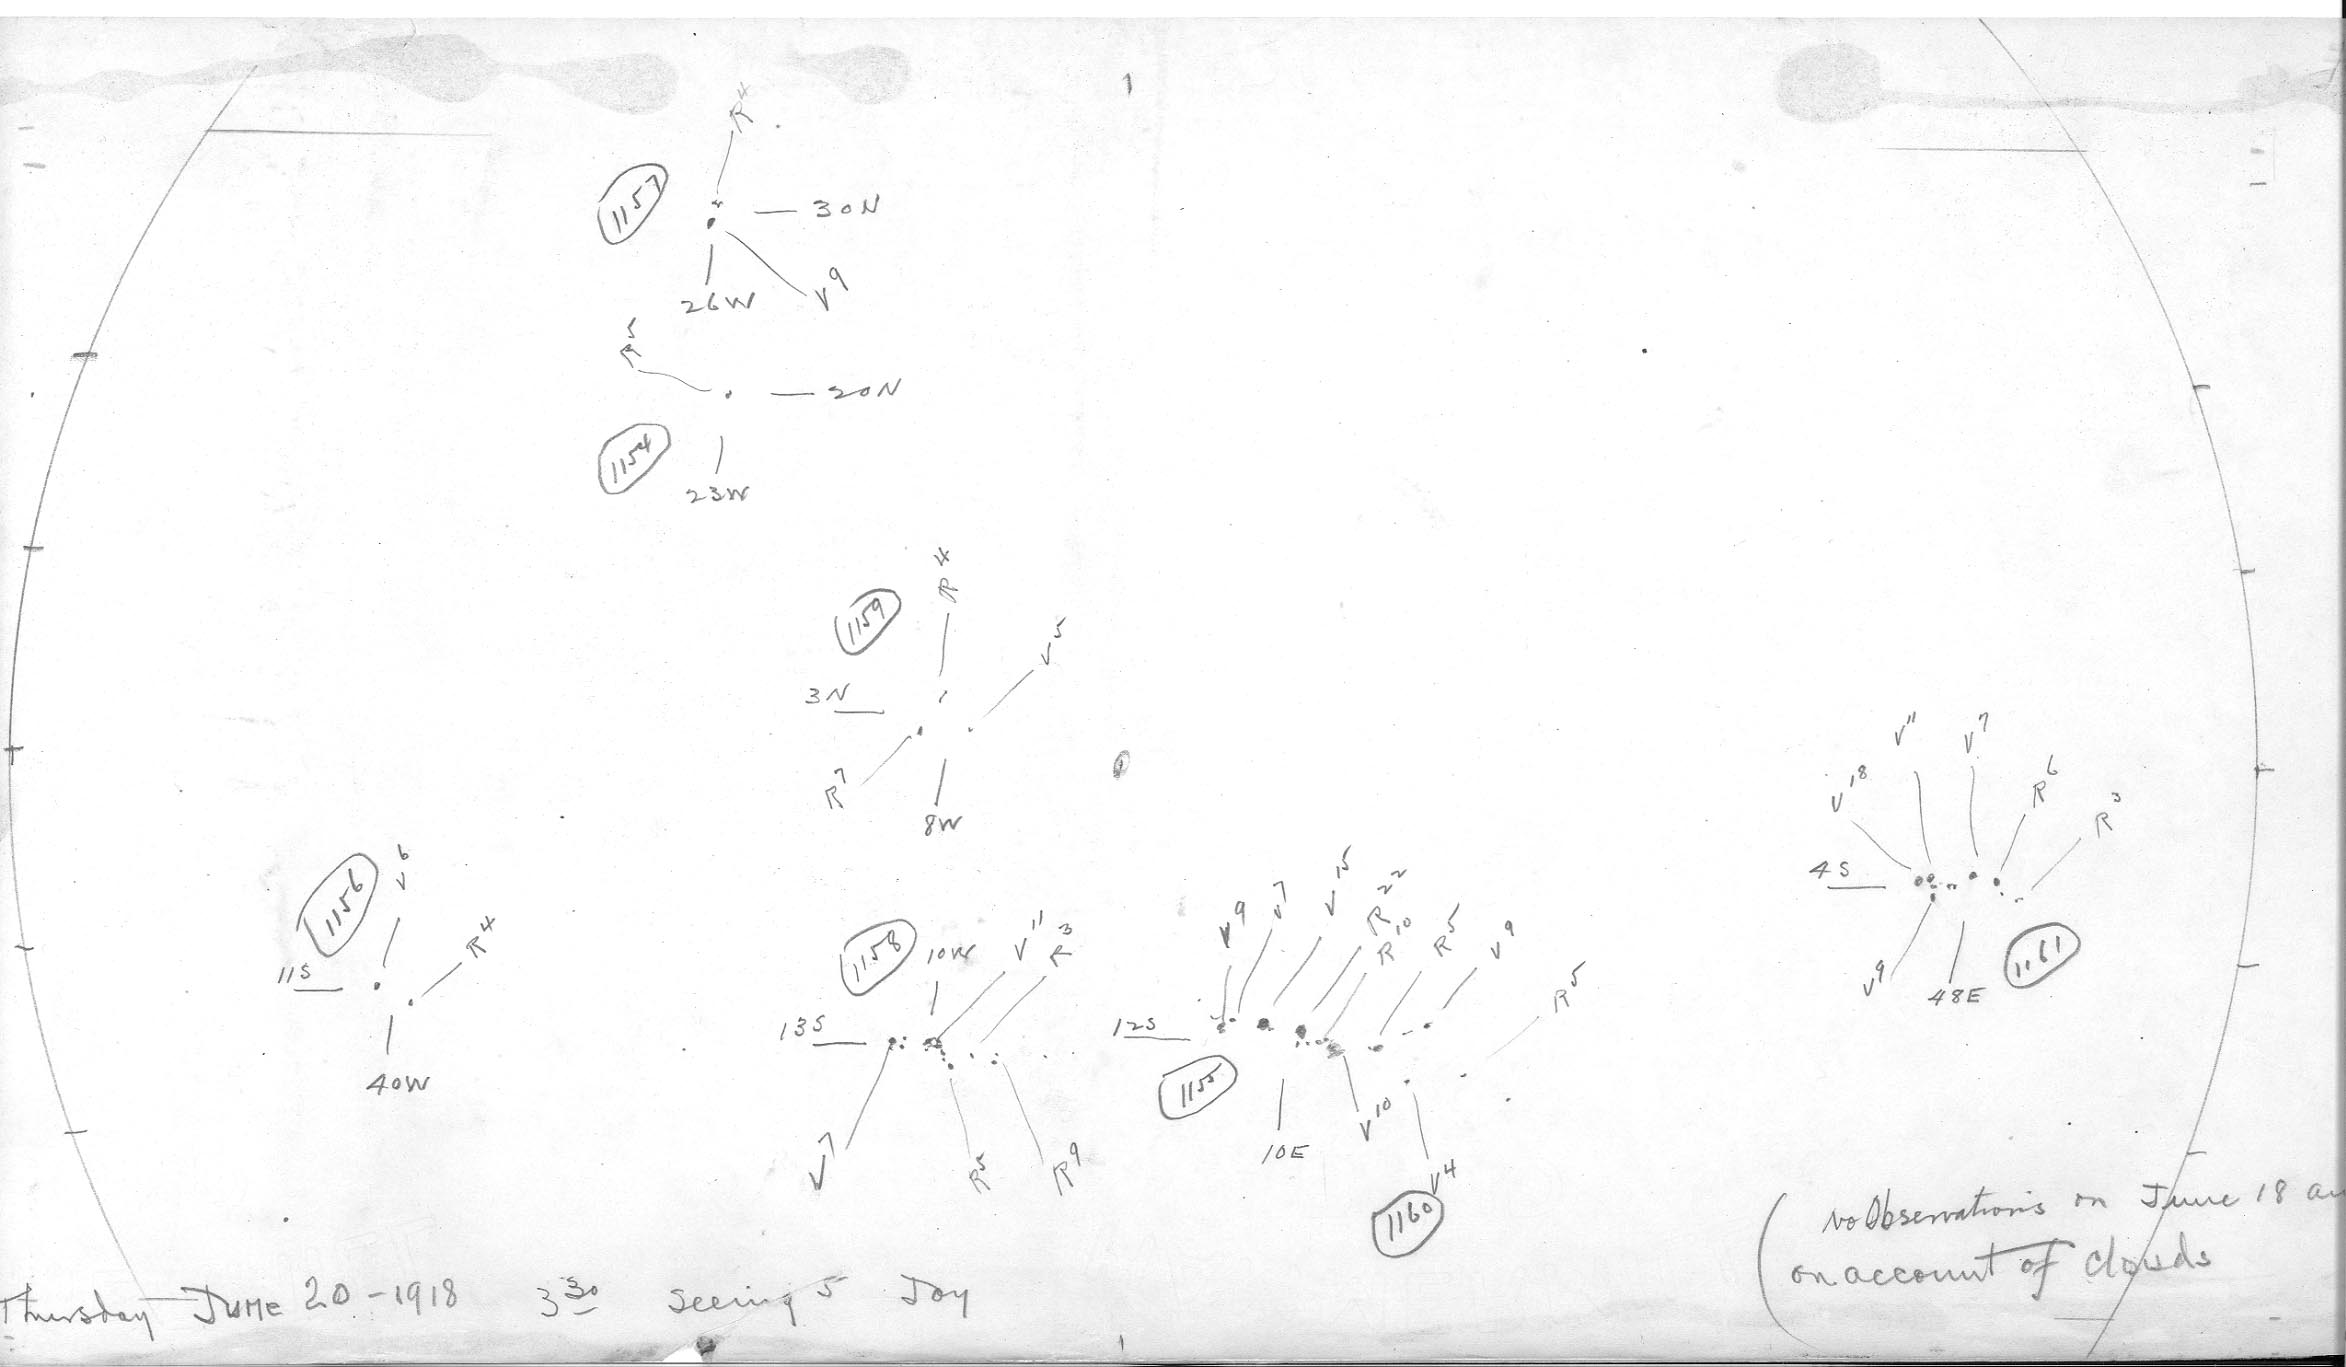 R4
1157
30N
26W
V9
R5
20N
1154
23W
R4
1159
V5
3N
R7
8W
V11
V7
V18
R6
R3
4S
V9
48E
1161
V6
1156
R4
11S
40W
1158
10W
V11
R3
13S
V7
R5
R9
V9
V7
V15
R22
R10
R5
V9
R5
12S
1155
10E
V10
V4
1160
(No Observations on June 18
on account of clouds
Thursday June 20-1918 3 30 Seeing 5 Joy